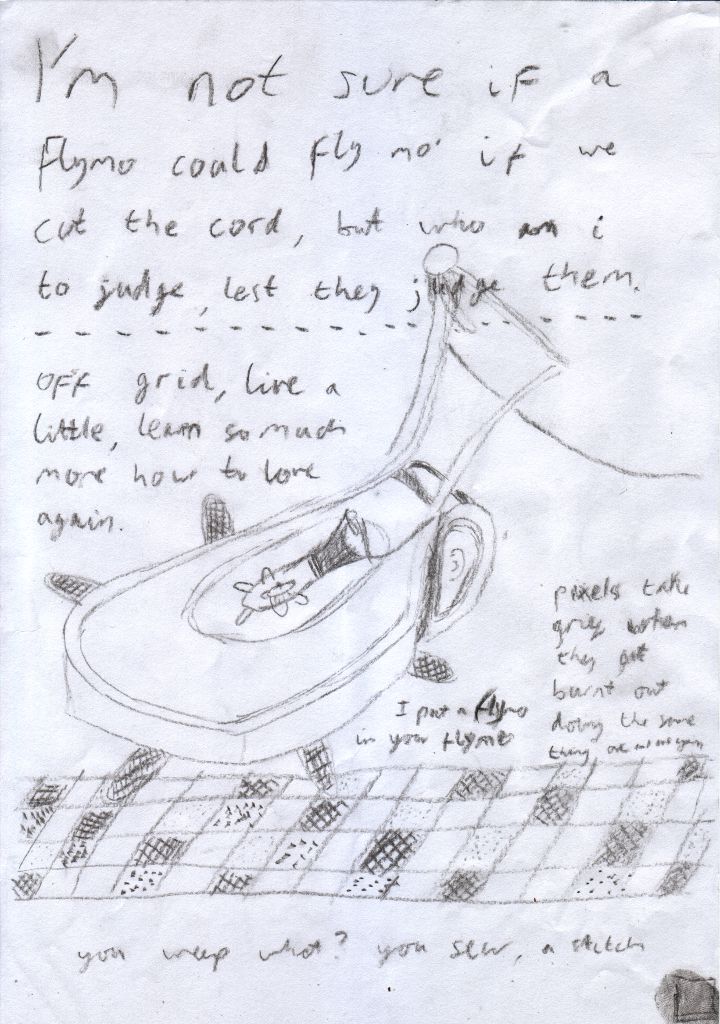 I'm not sure if a
flymo could fly mo' if we
cut the cord, but who am i
to judge, lest they judge them.
OFF grid, live a
little, learn so much
more how to love
again.
pixels take
grey when
they get
burnt out
doing the same
thing over
I put a flymo
in your flymo
you weep what? you sew, a stitch